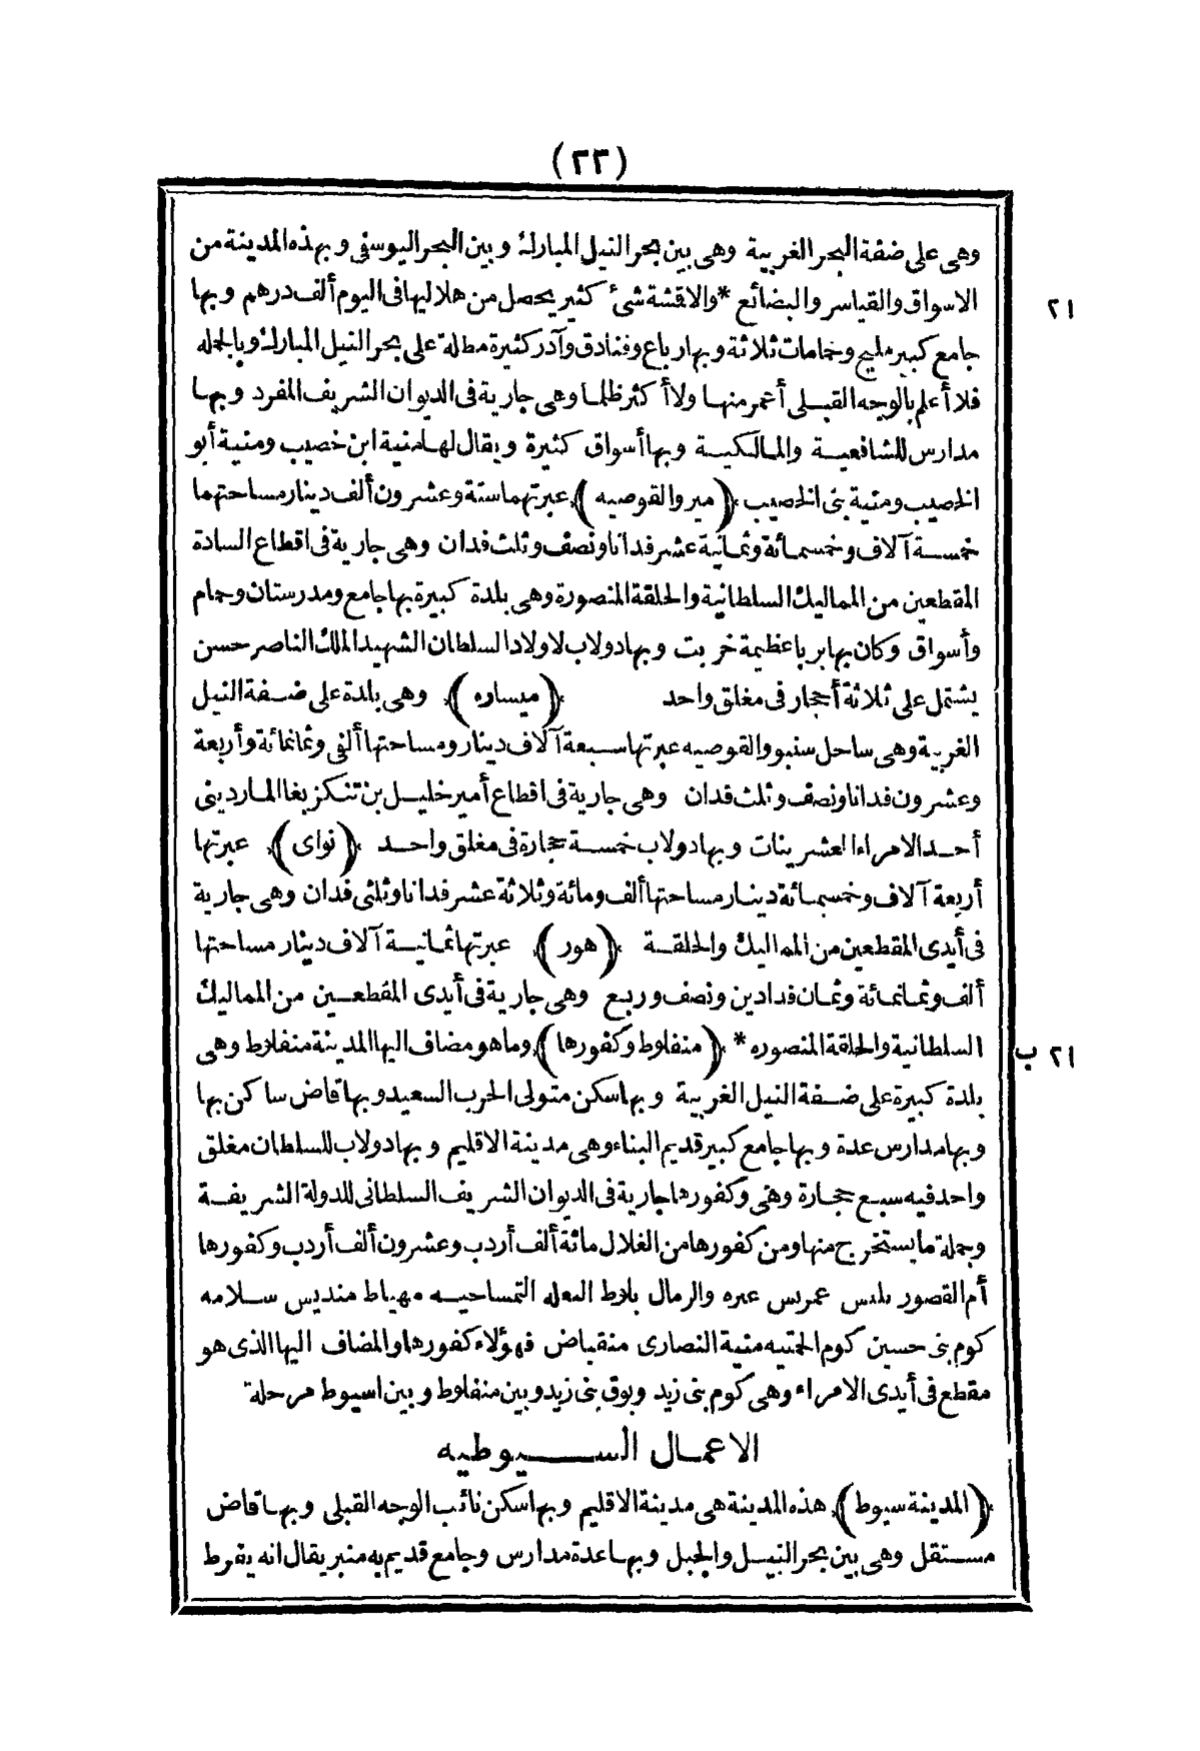 (٢٣)
وهى على ضفة البحر الغربية وهى بين بحر النيل المبارك وبين البحر اليوسفى وبهذه المدينة من
الاسواق والقياسر والبضائع * والاقشة شئ كثير يحصل من هلاليها فى اليوم ألف درهم وبها
٢١
جامع كبير مليح وحمامات ثلاثة وبها رباع وفنادق وآدر كثيرة مطلة على بحر النيل المبارك وبالجملة
فلا أعلم بالوجه القبلى أعمر منها ولا أكثر ظلما وهى جارية فى الديوان الشريف المفرد وبها
مدارس للشافعية والمالكية وبها أسواق كثيرة ويقال لها منية ابن خصيب ومنية أبو
الخصيب ومنية بنى الخصيب (مير والقوصيه) عبرتهما ستة وعشرون ألف دينار مساحتهما
خمسة آلاف وخمسمائة وثمانية عشر فدانا ونصف وثلث فدان وهى جارية فى اقطاع السادة
المقطعين من المماليك السلطانية والحلقة المنصورة وهى بلدة كبيرة بها جامع ومدرستان وحمام
وأسواق وكان بها بربا عظيمة خربت وبها دولاب لاولاد السلطان الشهيد الملك الناصر حسن
يشتمل على ثلاثة أحجار فى مغلق واحد (ميساره) وهى بلدة على ضفة النيل
الغربية وهى ساحل سنبو والقوصيه عبرتها سبعة آلاف دينار ومساحتها ألفى وثمانمائة وأربعة
وعشرون فدانا ونصف وثلث فدان وهى جارية فى اقطاع أمير خليل بن تنكز بغا الماردينى
أحد الامراء العشرينات وبها دولاب خمسة حجارة فى مغلق واحد (نواى) عبرتها
أربعة آلاف وخمسمائة دينار مساحتها ألف ومائة وثلاثة عشر فدانا وثلثى فدان وهى جارية
فى أيدى المقطعين من المماليك والحلقة (هور) عبرتها ثمانية آلاف دينار مساحتها
ألف وثمانمائة وثمان فدادين ونصف وربع وهى جارية فى أيدى المقطعين من المماليك
السلطانية والحلقة المنصوره * (منفلوط وكفورها) وما هو مضاف اليها المدينة منفلوط وهى
٢١ ب
بلدة كبيرة على ضفة النيل الغربية وبها سكن متولى الحرب السعيد وبها قاض ساكن بها
وبها مدارس عدة وبها جامع كبير قديم البناء وهى مدينة الاقليم وبها دولاب للسلطان مغلق
واحد فيه سبع حجارة وهى وكفورها جارية فى الديوان الشريف السلطانى للدولة الشريفة
وجملة ما يستخرج منها ومن كفورها من الغلال مائة ألف أردب وعشرون ألف أردب وكفورها
أم القصور عمريس والرمال بلاط التمساحيه مهياط منديس سلامه
كوم بنى حسين كوم منية النصارى منقباض فهؤلاء كفورها والمضاف اليها الذى هو
مقطع فى أيدى الامراء وهى كوم بنى زيد وبوق بنى زيد وبين منفلوط وبين اسيوط مرحلة
الاعمال السيوطيه
(المدينة سيوط) هذه المدينة هى مدينة الاقليم وبها سكن نائب الوجه القبلى وبها قاض
مستقل وهى بين بحر النيل والجبل وبها عدة مدارس وجامع قديم به منبر يقال انه يفرط